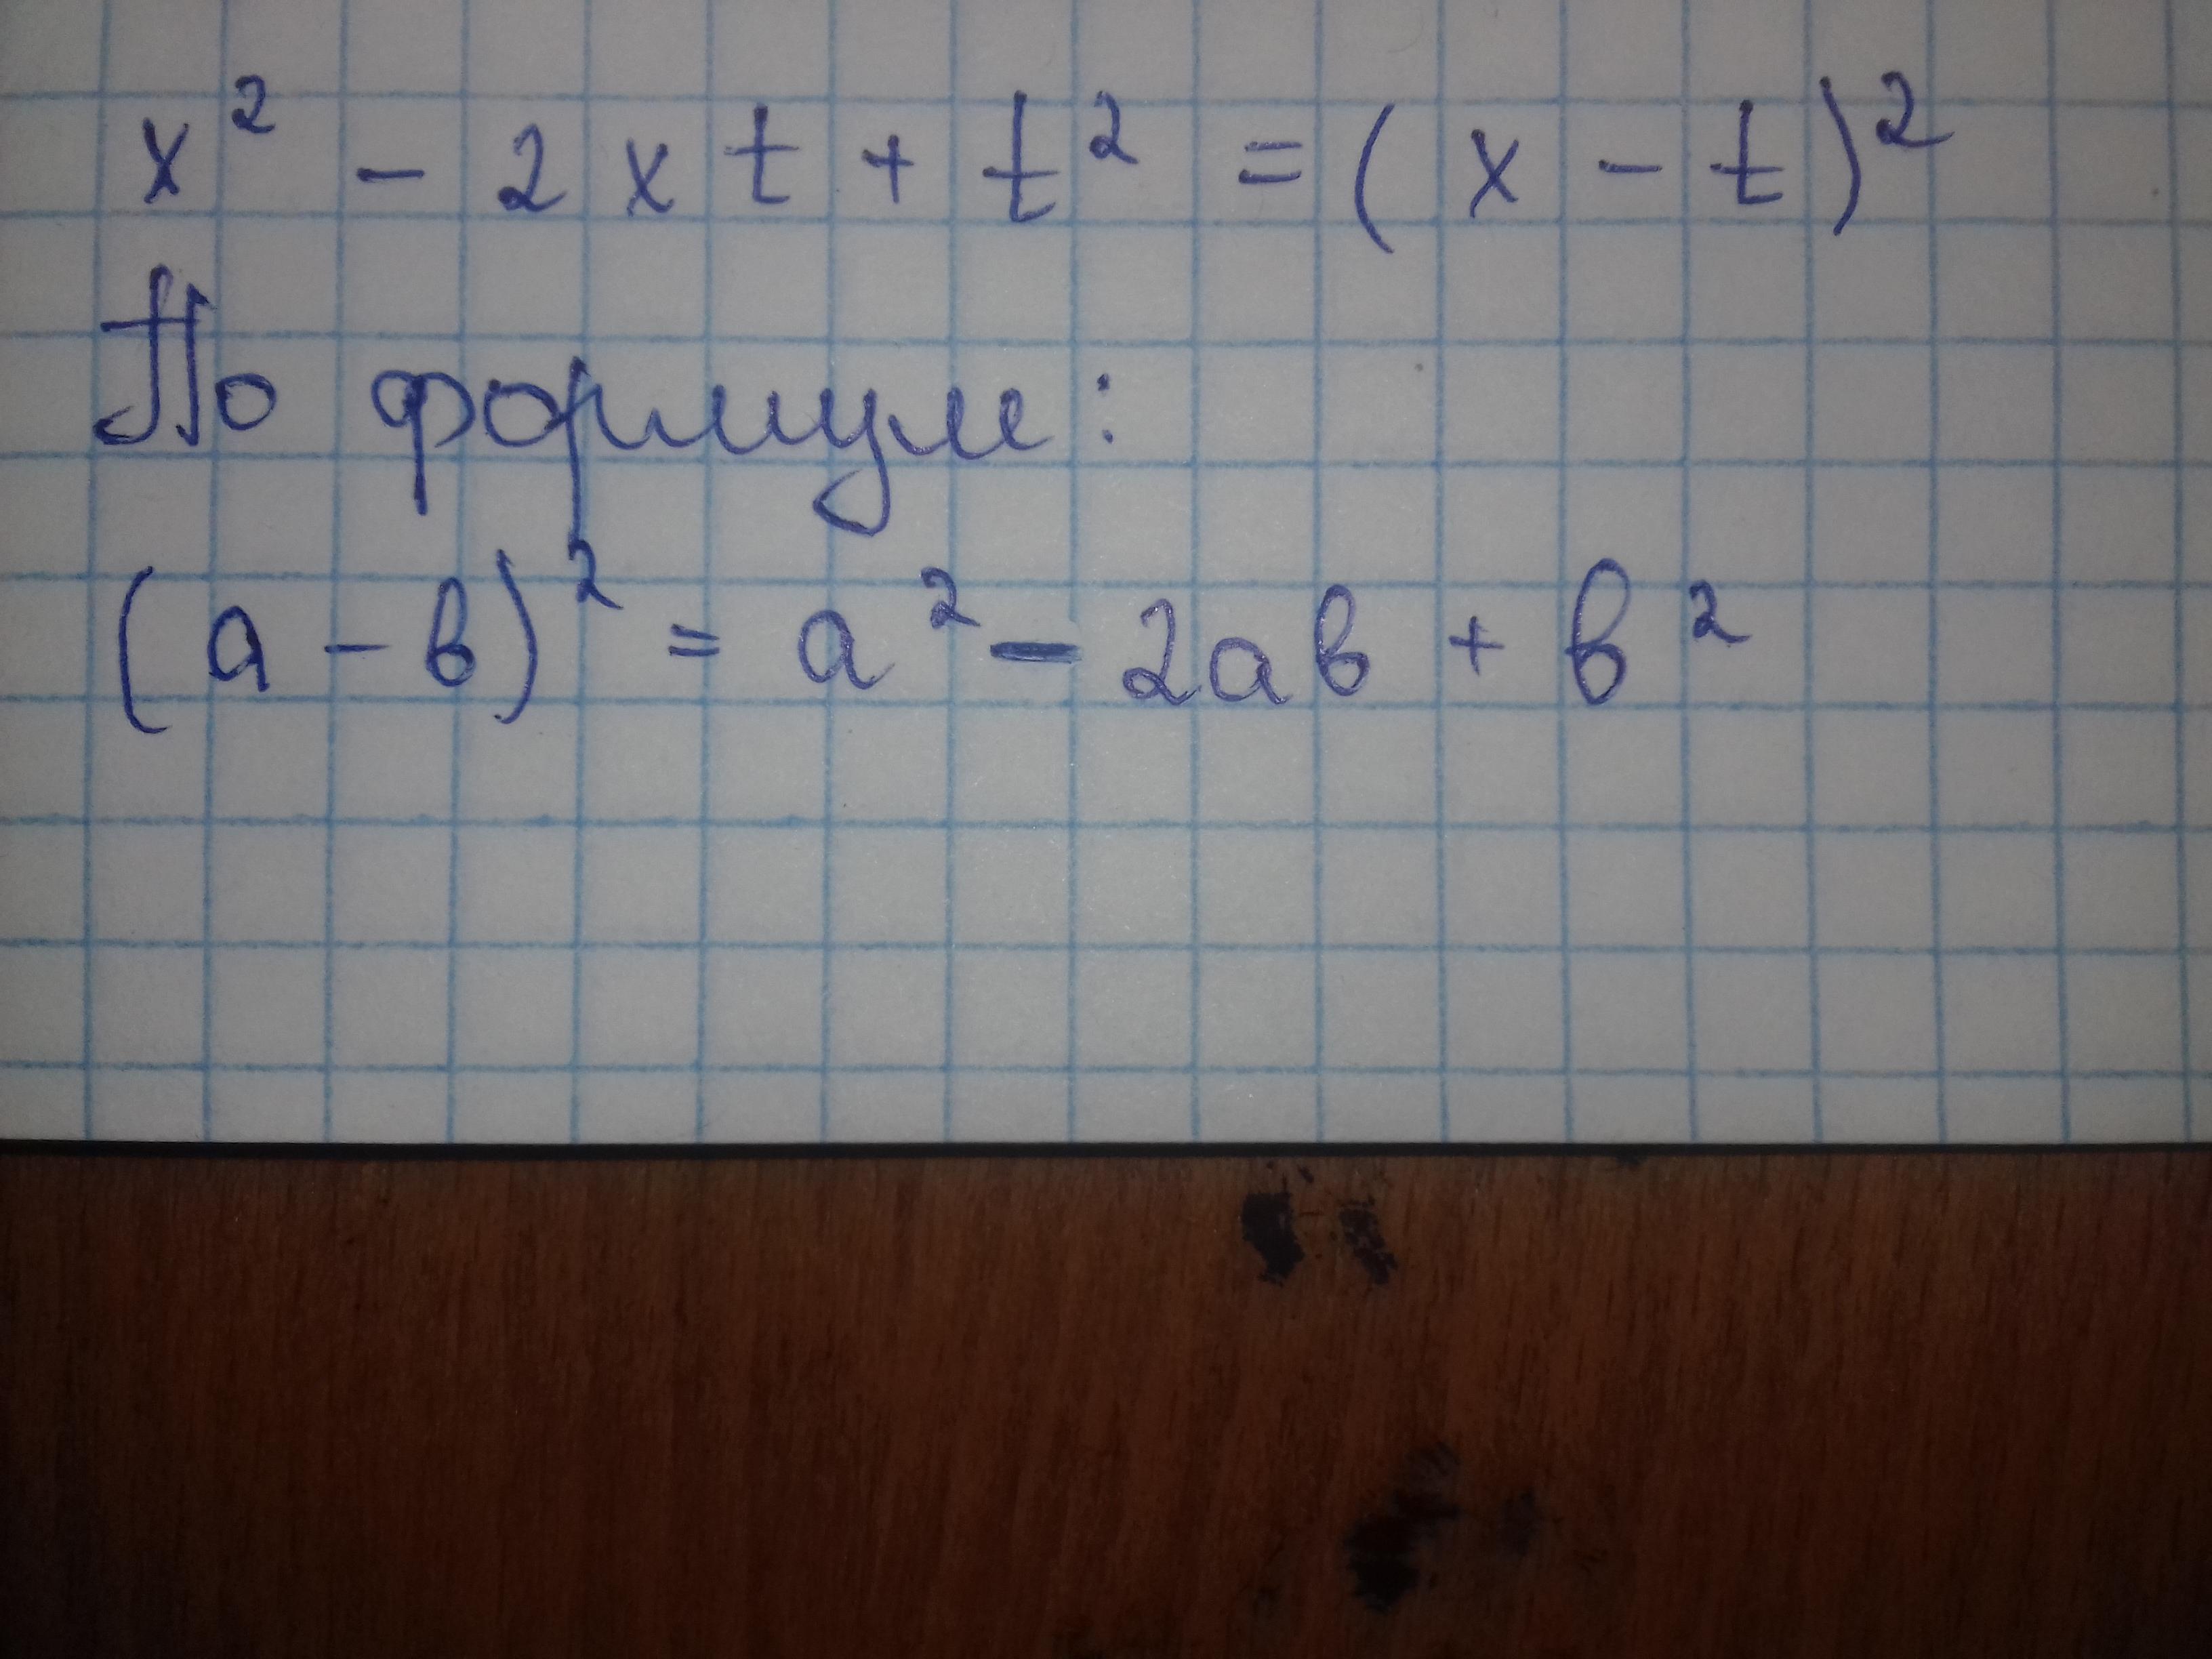 x² - 2xt + t² = (x - t)²
По формуле:
(a - в)² = a² - 2aв + в²